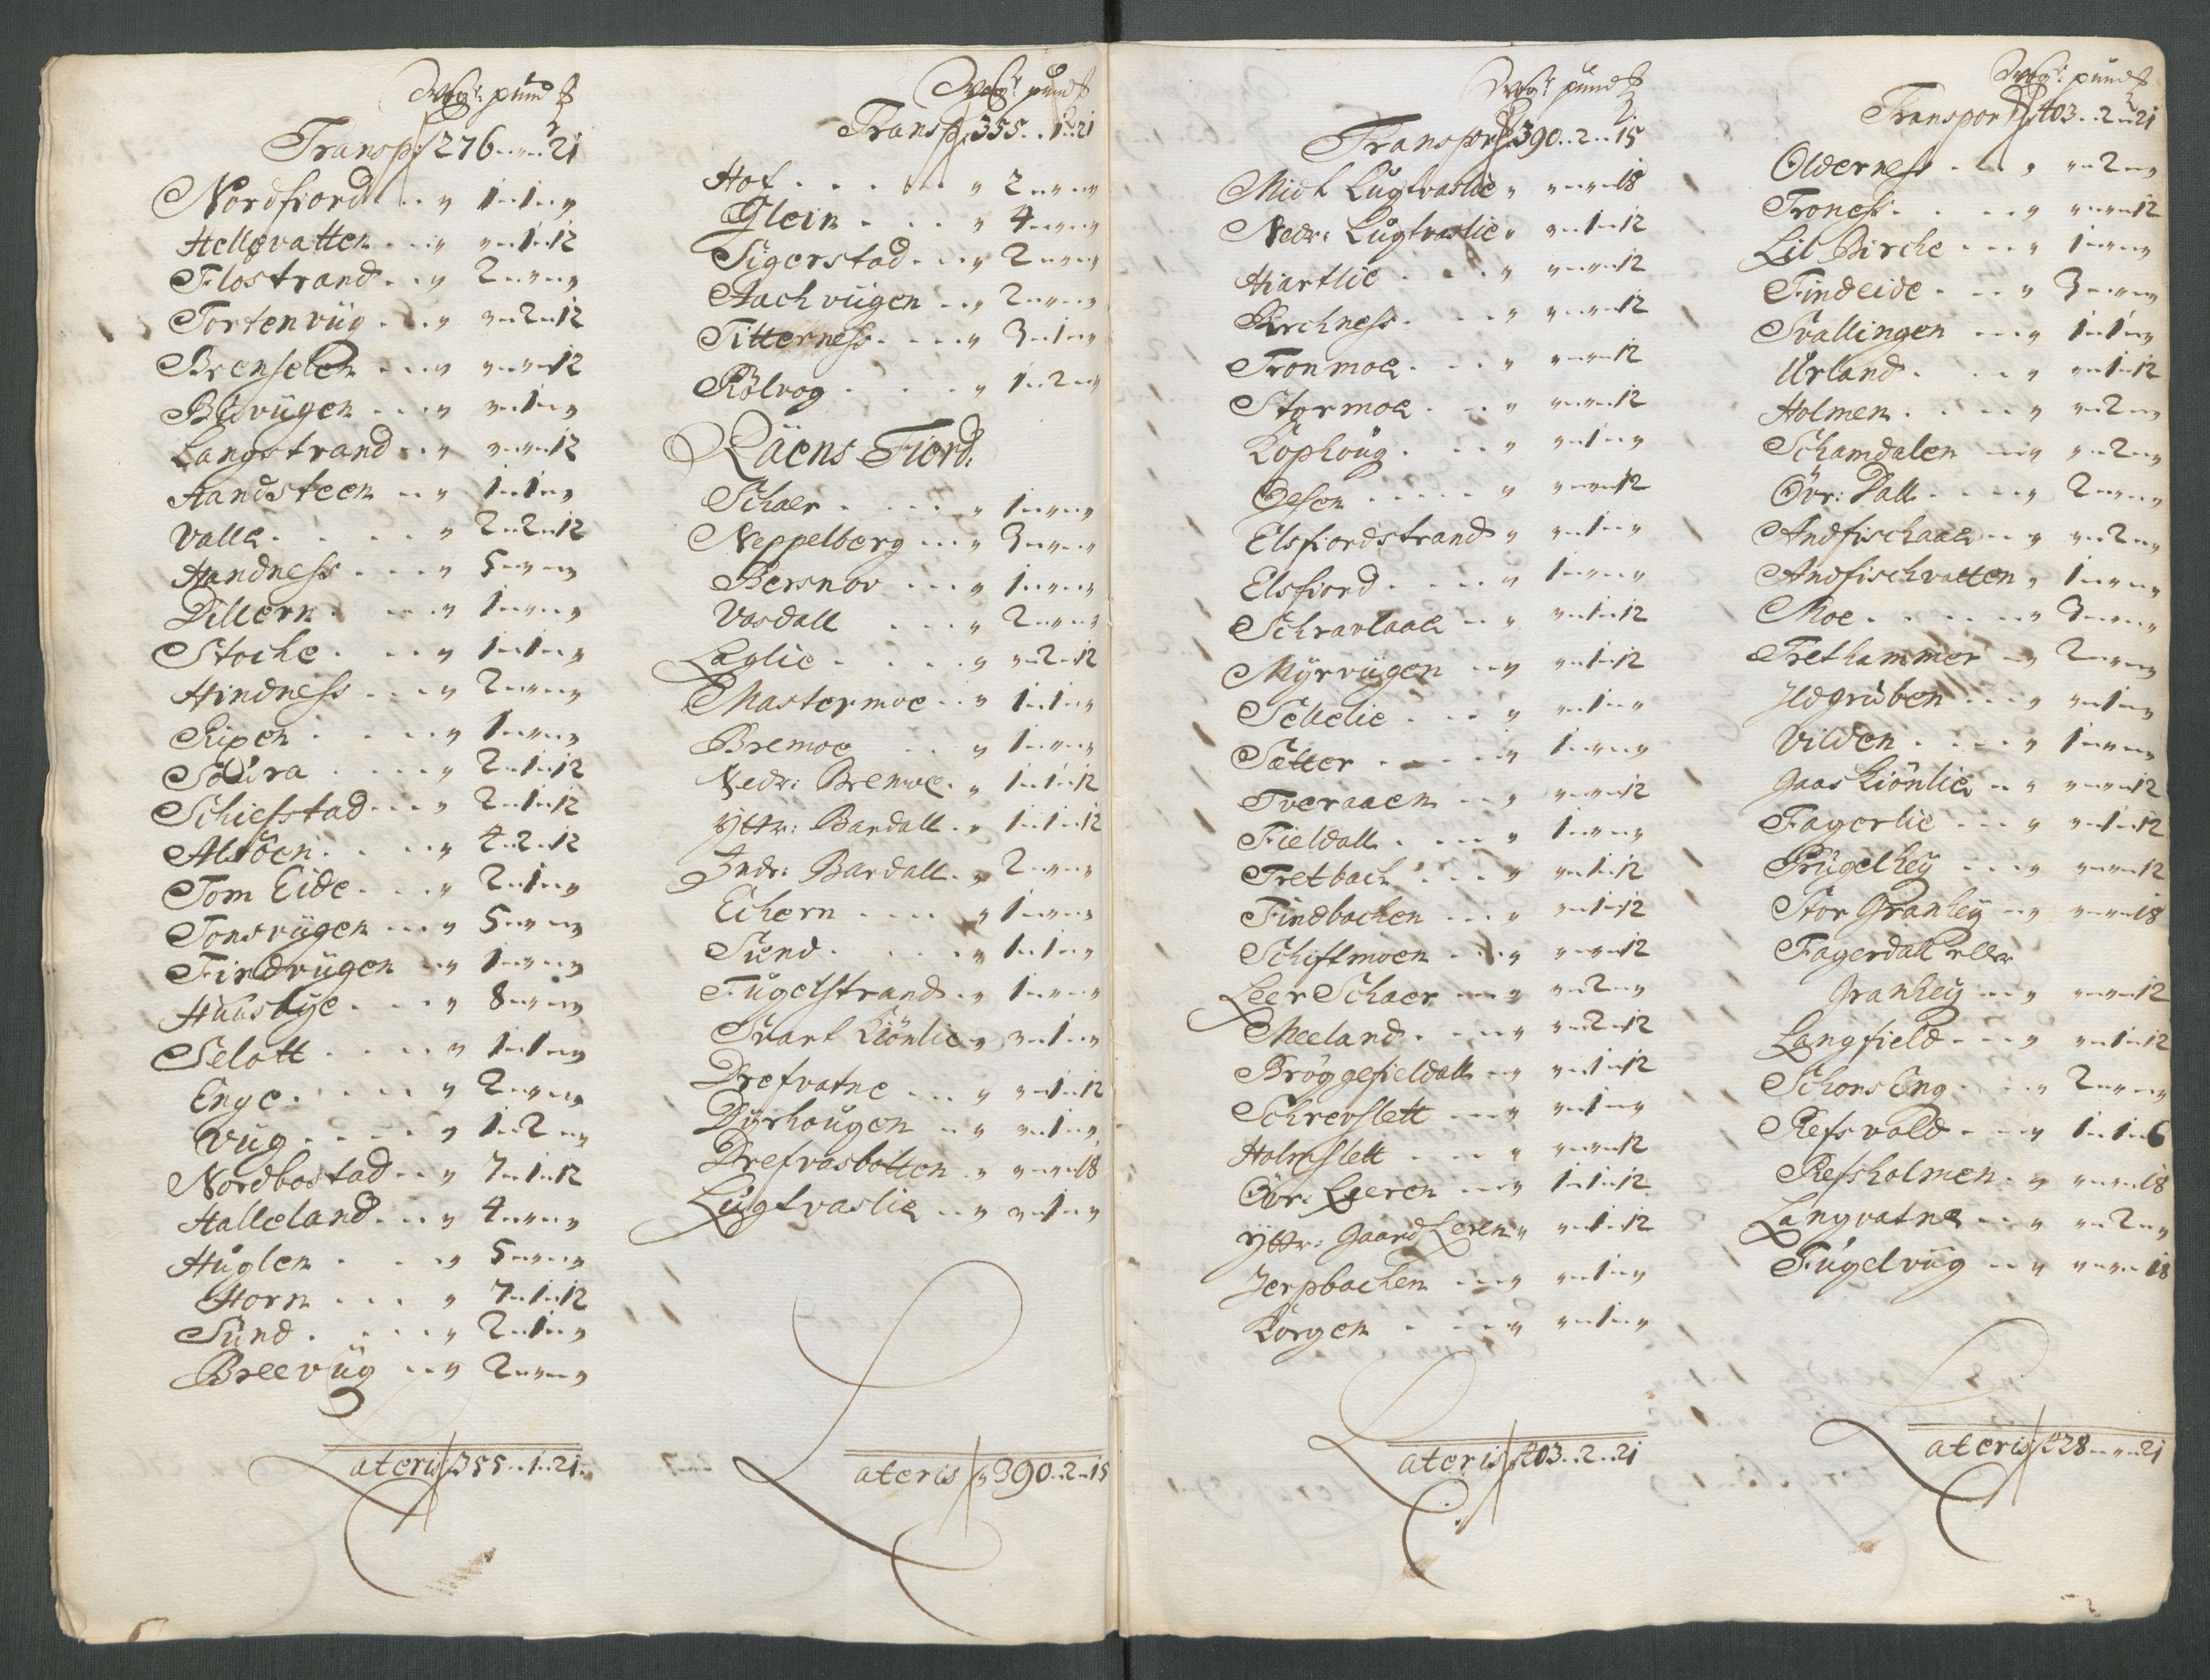 Wog: pund
Transp: 276 „ „ 21
Nordfiord . . . „ 1 „ 1 „ „
Hellevatten . . . „ „ „ 1 „ 12
Flostrand . . „ 2 „ „ „ „
Tortenvüg . . . „ „ „ 2 „ 12
Brenselen . . . „ „ „ „ „ 12
Blivügen . . . „ „ „ 1 „ „
Langstrand . . „ „ „ „ „ 12
Aandsteen . . „ 1 „ 1 „ „
Valla . . . . „ 2 „ 2 „ 12
Handness . . . „ 5 „ „ „ „
Dillern . . . „ 1 „ „ „ „
Stoche . . . „ 1 „ 1 „ „
Hindness . . . „ 2 „ „ „ „
Ripen . . . . „ 1 „ „ „ „
Soüra . . . . „ 2 „ 1 „ 12
Schiefstad . . . „ 2 „ 1 „ 12
Alsöen . . . . „ 4 „ 2 „ 12
Tom Eide . . . „ 2 „ 1 „ „
Tonsvügen . . . „ 5 „ „ „ „
Findvügen . . „ 1 „ „ „ „
Huusbye . . . „ 8 „ „ „ „
Selott . . . . „ 1 „ 1 „ „
Enge . . . . „ 2 „ „ „ „
Vüg . . . . . „ 1 „ 2 „ „
Nordbostad . . „ 7 „ 1 „ 12
Halleland . . . „ 4 „ „ „ „
Huglen . . . „ 5 „ „ „ „
Horn . . . „ 7 „ 1 „ 12
Sund . . . . „ 2 „ 1 „ „
Breevüg . . „ 2 „ „ „ „
Lateris 355 „ 1 „ 21
Wog: pund
Transp: 355 . . 1 . . 21
Hof . . . . . . „ 2 „ „ „ „
Glein . . . . „ 4 „ „ „ „
Sigerstad . . . „ 2 „ „ „ „
Aachvügen . . „ 2 „ „ „ „
Titterness . . . . „ 3 „ 1 „ „
Rölvog . . . . „ 1 „ 2 „ „
Räens Fiord.
Schaer . . . . . „ 1 „ „ „ „
Neppelberg . . . „ 3 „ „ „ „
Bersnov . . . „ 1 „ „ „ „
Vasdall . . . „ 2 „ „ „ „
Laglie . . . . . „ „ „ 2 „ 12
Mastermoe . . „ 1 „ 1 „ „
Bremoe . . „ 1 „ „ „ „
Nedr: Bremoe . „ 1 „ 1 „ 12
Yttr: Bardall . „ 1 „ 1 „ 12
Indr: Bardall . „ 2 „ „ „ „
Echern . . . . „ 1 „ „ „ „
Sund . . . . . „ 1 „ 1 „ „
Fugelstrand . „ 1 „ „ „ „
Svart Kiönlie „ „ „ 1 „ „
Drefvatne . . . „ „ „ 1 „ 12
Dyrhougen . . „ „ „ 1 „ „
Drefvasbotten . „ „ „ „ „ 18
Lugtvaslie . . „ „ „ 1 „ „
Lateris 390 . . 2 „ 15
Wog: pund
Transport 390 . . 2 . . 15
Midt Lugtvaslie „ „ „ „ „ 18
Nedr: Lugtvaslie „ „ „ 1 „ 12
Hiartlie . . . „ „ „ „ „ 12
Kirchness . . . . „ „ „ „ „ 12
Tronmoe . . . „ „ „ „ „ 12
Stormoe . . . „ „ „ „ „ 12
Kophoug . . . . „ „ „ 1 „ „
Olsen . . . . . „ „ „ „ „ 12
Elsfiordstrand „ „ „ 1 „ „
Elsfiord . . . . „ 1 „ „ „ „
Schravlaae . . „ „ „ 1 „ 12
Myrvügen . . „ „ „ 1 „ 12
Sellelie . . . „ „ „ 1 „ „
Sætter . . . . „ 1 „ „ „ „
Tveraaen . . „ „ „ „ „ 12
Fieldall . . . . „ 1 „ „ „ „
Tretbach . . . „ „ „ 1 „ 12
Findbachen . . . „ „ „ 1 „ 12
Schiftmoen . . . „ „ „ „ „ 12
Leer Schaer . . . „ „ „ 2 „ „
Meeland . . . . „ „ „ 2 „ 12
Bröggefieldall . . „ „ „ 1 „ 12
Schrevslett . . . „ „ „ 1 „ „
Holmslett . . . „ „ „ „ „ 12
Övr: Leeren . . . „ 1 „ 1 „ 12
Yttr: Gaard Leren „ „ „ 1 „ 12
Jerpbachen . . . „ „ „ 1 „ „
Korgen . . . . „ „ „ 1 „ „
Lateris 403 . . 2 . . 21
Wog: pund
Transport 403 . . 2 „ 21
Olderness . . . „ „ „ 2 „ „
Troness . . . . . „ „ „ „ „ 12
Lil Birche . . . „ 1 „ „ „ „
Findeide . . . „ 3 „ „ „ „
Svallingen . . . „ 1 „ 1 „ „
Urland . . . . „ „ „ 1 „ 12
Holmen . . . . . „ „ „ 2 „ „
Schamdalen . . „ „ „ 2 „ „
Övr: Dall . . . . „ 2 „ „ „ „
Andfischaae . . „ „ „ 2 „ „
Andfischvatten „ 1 „ „ „ „
Moe . . . . . . „ 3 „ „ „ „
Trethammer . „ 2 „ „ „ „
Ildgruben . . . „ „ „ 1 „ „
Vilden . . . . „ 1 „ „ „ „
Gaas Kiönlie . . „ „ „ „ „ 12
Fagerlie . . . „ „ „ 1 „ 12
Prügelhey . . . „ „ „ „ „ 12
Stor Granhey . . „ „ „ „ „ 18
Fagerdall eller
Granhey . . . „ „ „ „ „ 12
Langfield . . . „ „ „ 1 „ 12
Schons Eng . . . „ 2 „ „ „ „
Refsvold . . . „ 1 „ 1 „ 6
Refsholmen . „ „ „ „ „ 18
Langvatne . . „ „ „ 2 „ „
Fügelvüg . . „ „ „ „ „ 18
Lateris 428 „ „ 21